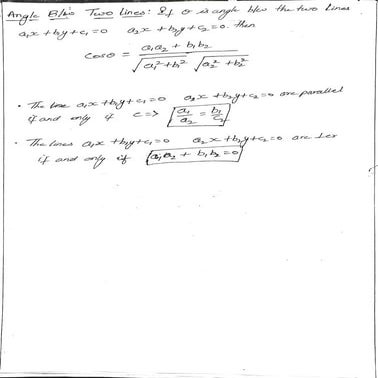 Angle B/w Two lines: If θ is angle b/w the two Lines
a₁x + b₁y + c₁ = 0 a₂x + b₂y + c₂ = 0. then
cosθ = (a₁a₂ + b₁b₂) / (√(a₁² + b₁²) √(a₂² + b₂²))
• The line a₁x + b₁y + c₁ = 0 a₂x + b₂y + c₂ = 0 are parallel
if and only if <=> a₁/a₂ = b₁/c₂
• The lines a₁x + b₁y + c₁ = 0 a₂x + b₂y + c₂ = 0 are ⊥er
if and only if a₁a₂ + b₁b₂ = 0